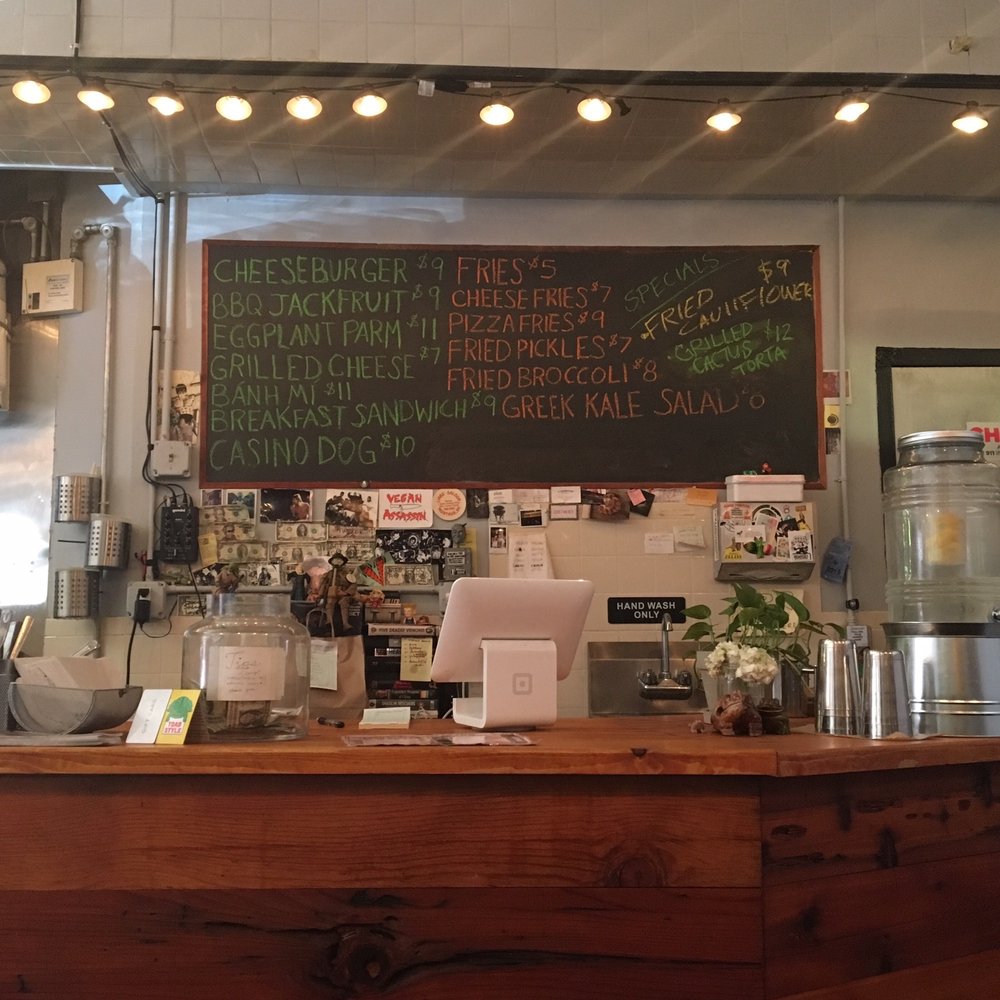 CHEESEBURGER $9
BBQ JACKFRUIT $9
EGGPLANT PARM $11
GRILLED CHEESE $7
BÁNH MÌ $11
BREAKFAST SANDWICH $9
CASINO DOG $10
FRIES $5
CHEESE FRIES $7
PIZZA FRIES $9
FRIED PICKLES $7
FRIED BROCCOLI $8
GREEK KALE SALAD
SPECIALS
$9
• FRIED
CAULIFLOWER
• GRILLED $12
CACTUS
TORTA
VEGAN
ASSASSIN
HAND WASH
ONLY
FIVE DEADLY VENOMS
Tips
TOAD
STYLE
CH